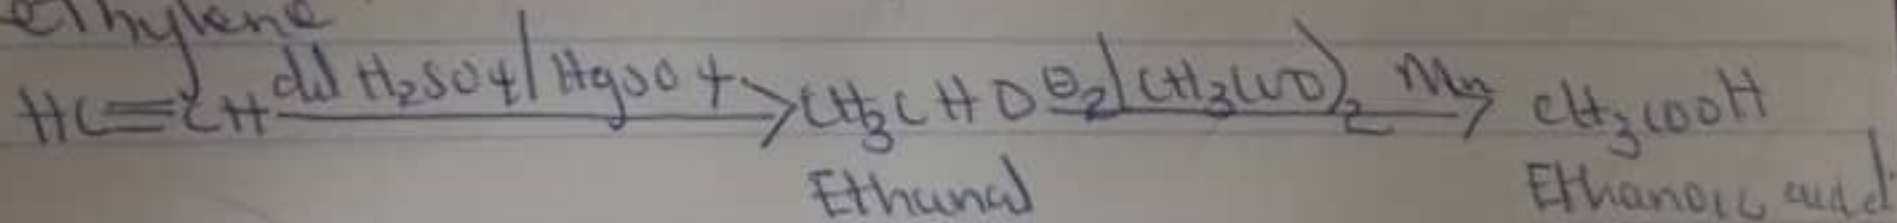 ethylene
HC≡CH dil H₂SO₄/HgSO₄ → CH₃CHO O₂/(CH₃COO)₂ Mn → CH₃COOH
Ethanal Ethanoic acid